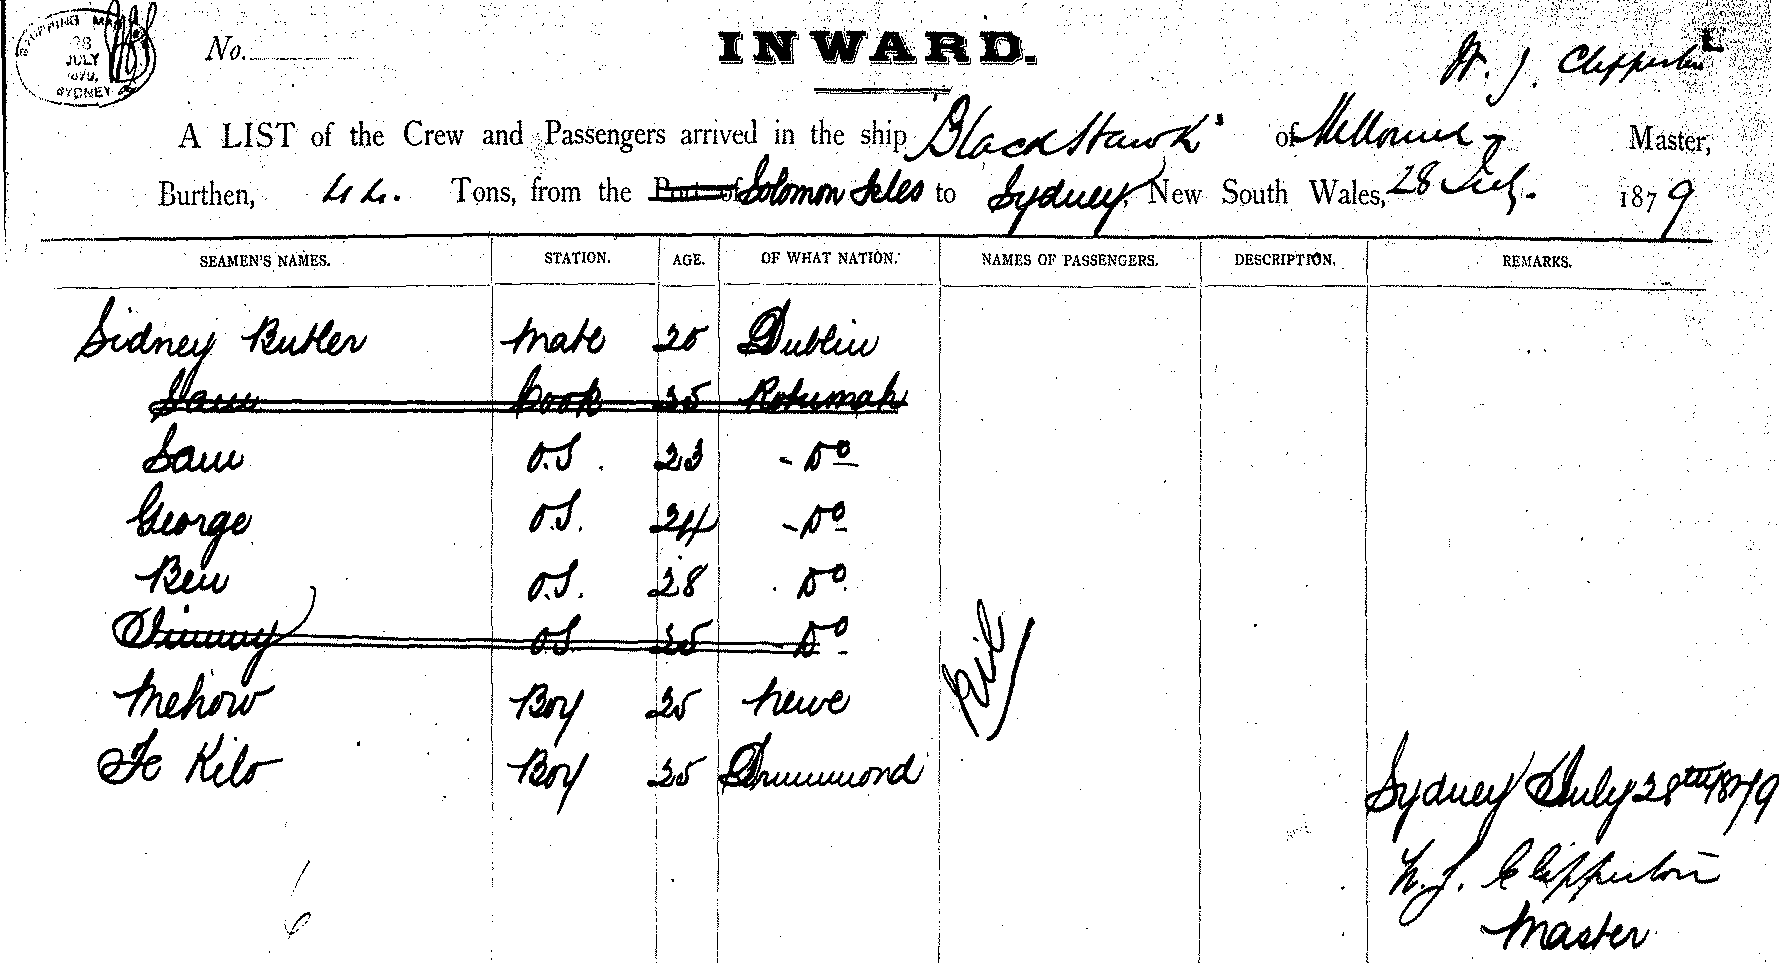 SHIPPING MAS
28
JULY
1879
SYDNEY
No.
INWARD.
W. J. Clipperton
A LIST of the Crew and Passengers arrived in the ship Black Hawk of Melbourne Master,
Burthen, 44. Tons, from the Port of Solomon Isles to Sydney, New South Wales, 28 July. 1879
SEAMEN'S NAMES. STATION. AGE. OF WHAT NATION. NAMES OF PASSENGERS. DESCRIPTION. REMARKS.
Sidney Butler Mate 25 Dublin
Sam Cook 35 Rotumah
Sam O.S. 23 - Do
George O.S. 24 - Do
Ben O.S. 28 Do
Jimmy OS 25 - Do
Mehow Boy 25
Te Kilo Boy 25 Drummond
Nil
Sydney July 28th 1879
W. J. Clipperton
Master